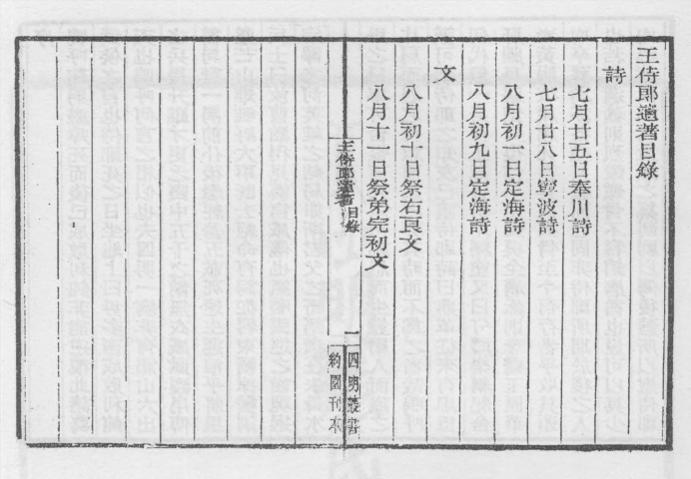 王侍郎遺著目錄
詩
七月廿五日奉川詩
七月廿八日寧波詩
八月初一日定海詩
八月初九日定海詩
文
八月初十日祭右良文
八月十一日祭弟完初文
王侍郎遺著 目錄
一
四明叢書
約園刊本